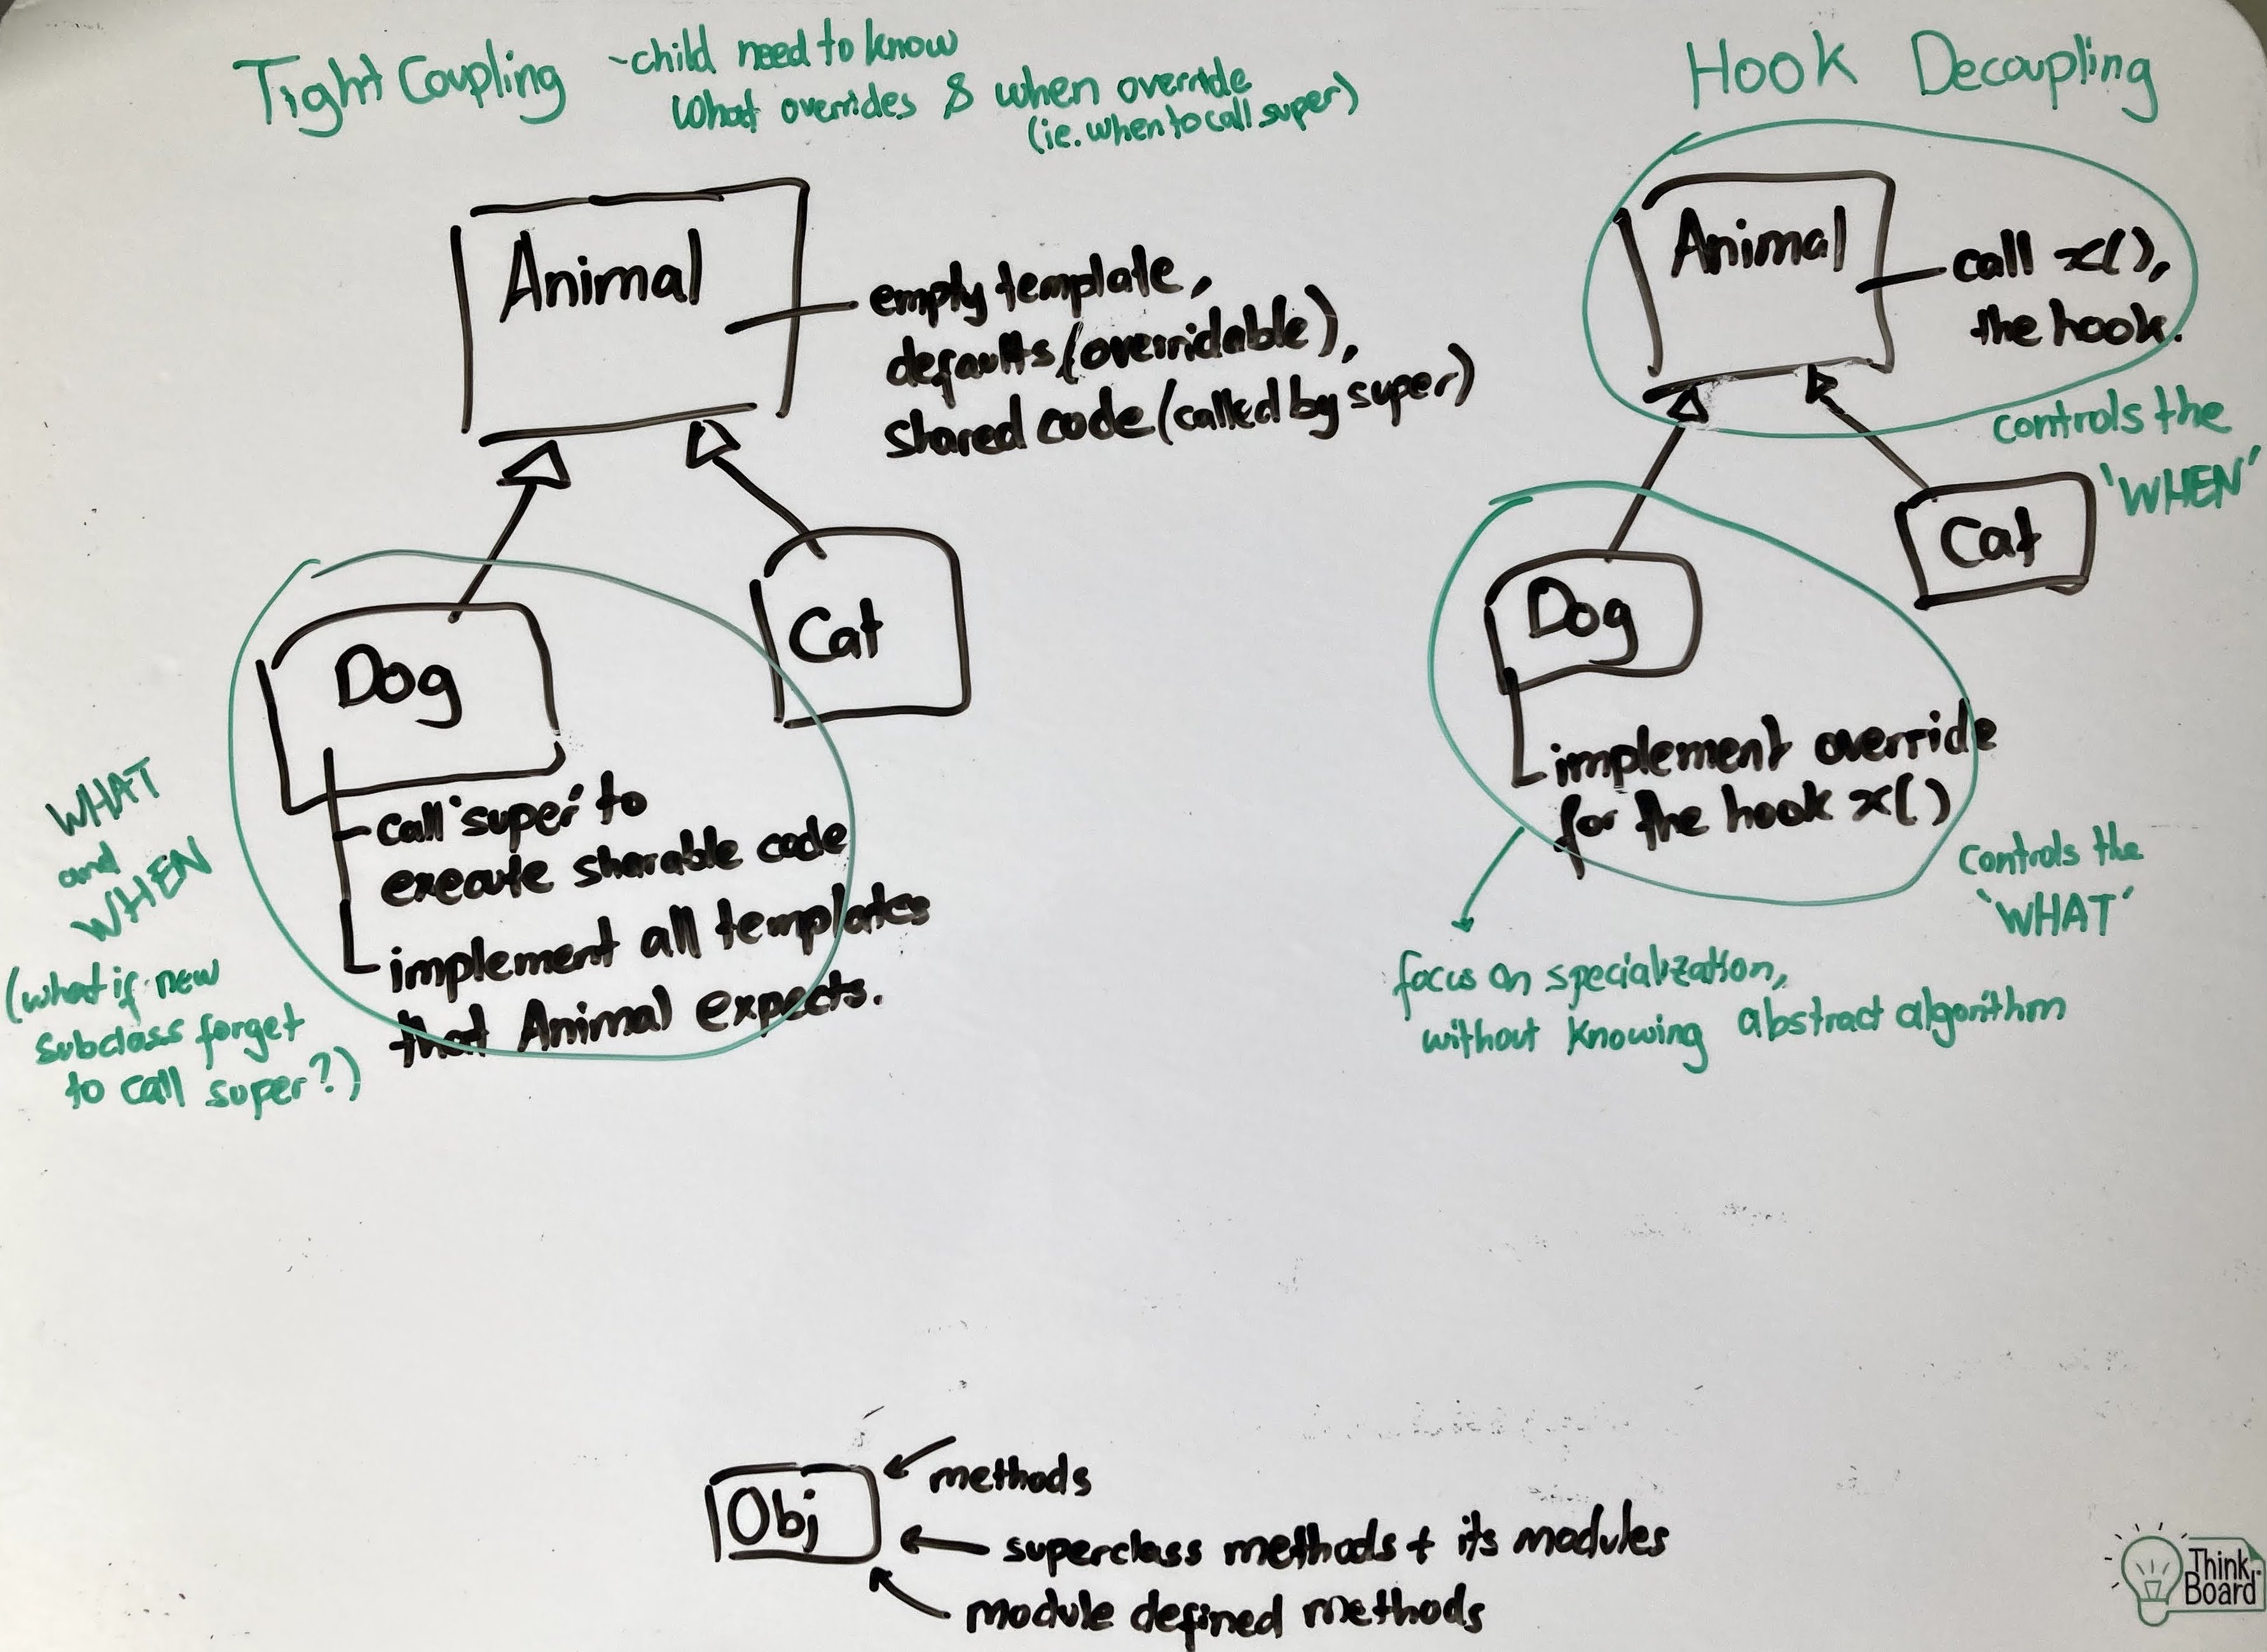 Tight Coupling
~child need to know
What overrides & when override
(ie. when to call super)
Animal
empty template,
defaults (overridable),
shared code (called by super)
Dog
Cat
call 'super' to
execute sharable code
implement all templates
that Animal expects.
WHAT
and
WHEN
(what if new
subclass forget
to call super?)
Hook Decoupling
Animal
call x(),
the hook.
controls the
'WHEN'
Dog
Cat
implement override
for the hook x()
controls the
'WHAT'
focus on specialization,
without knowing abstract algorithm
Obj
methods
superclass methods + its modules
module defined methods
Think
Board